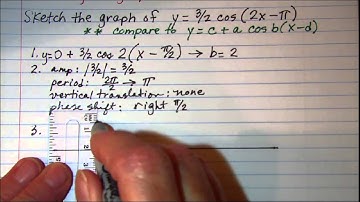 Sketch the graph of y = 3/2 cos (2x - π)
** compare to y = c + a cos b(x - d)
1. y = 0 + 3/2 cos 2(x - π/2) → b = 2
2. amp: |3/2| = 3/2
period: 2π/2 → π
vertical translation: none
phase shift: right π/2
3.